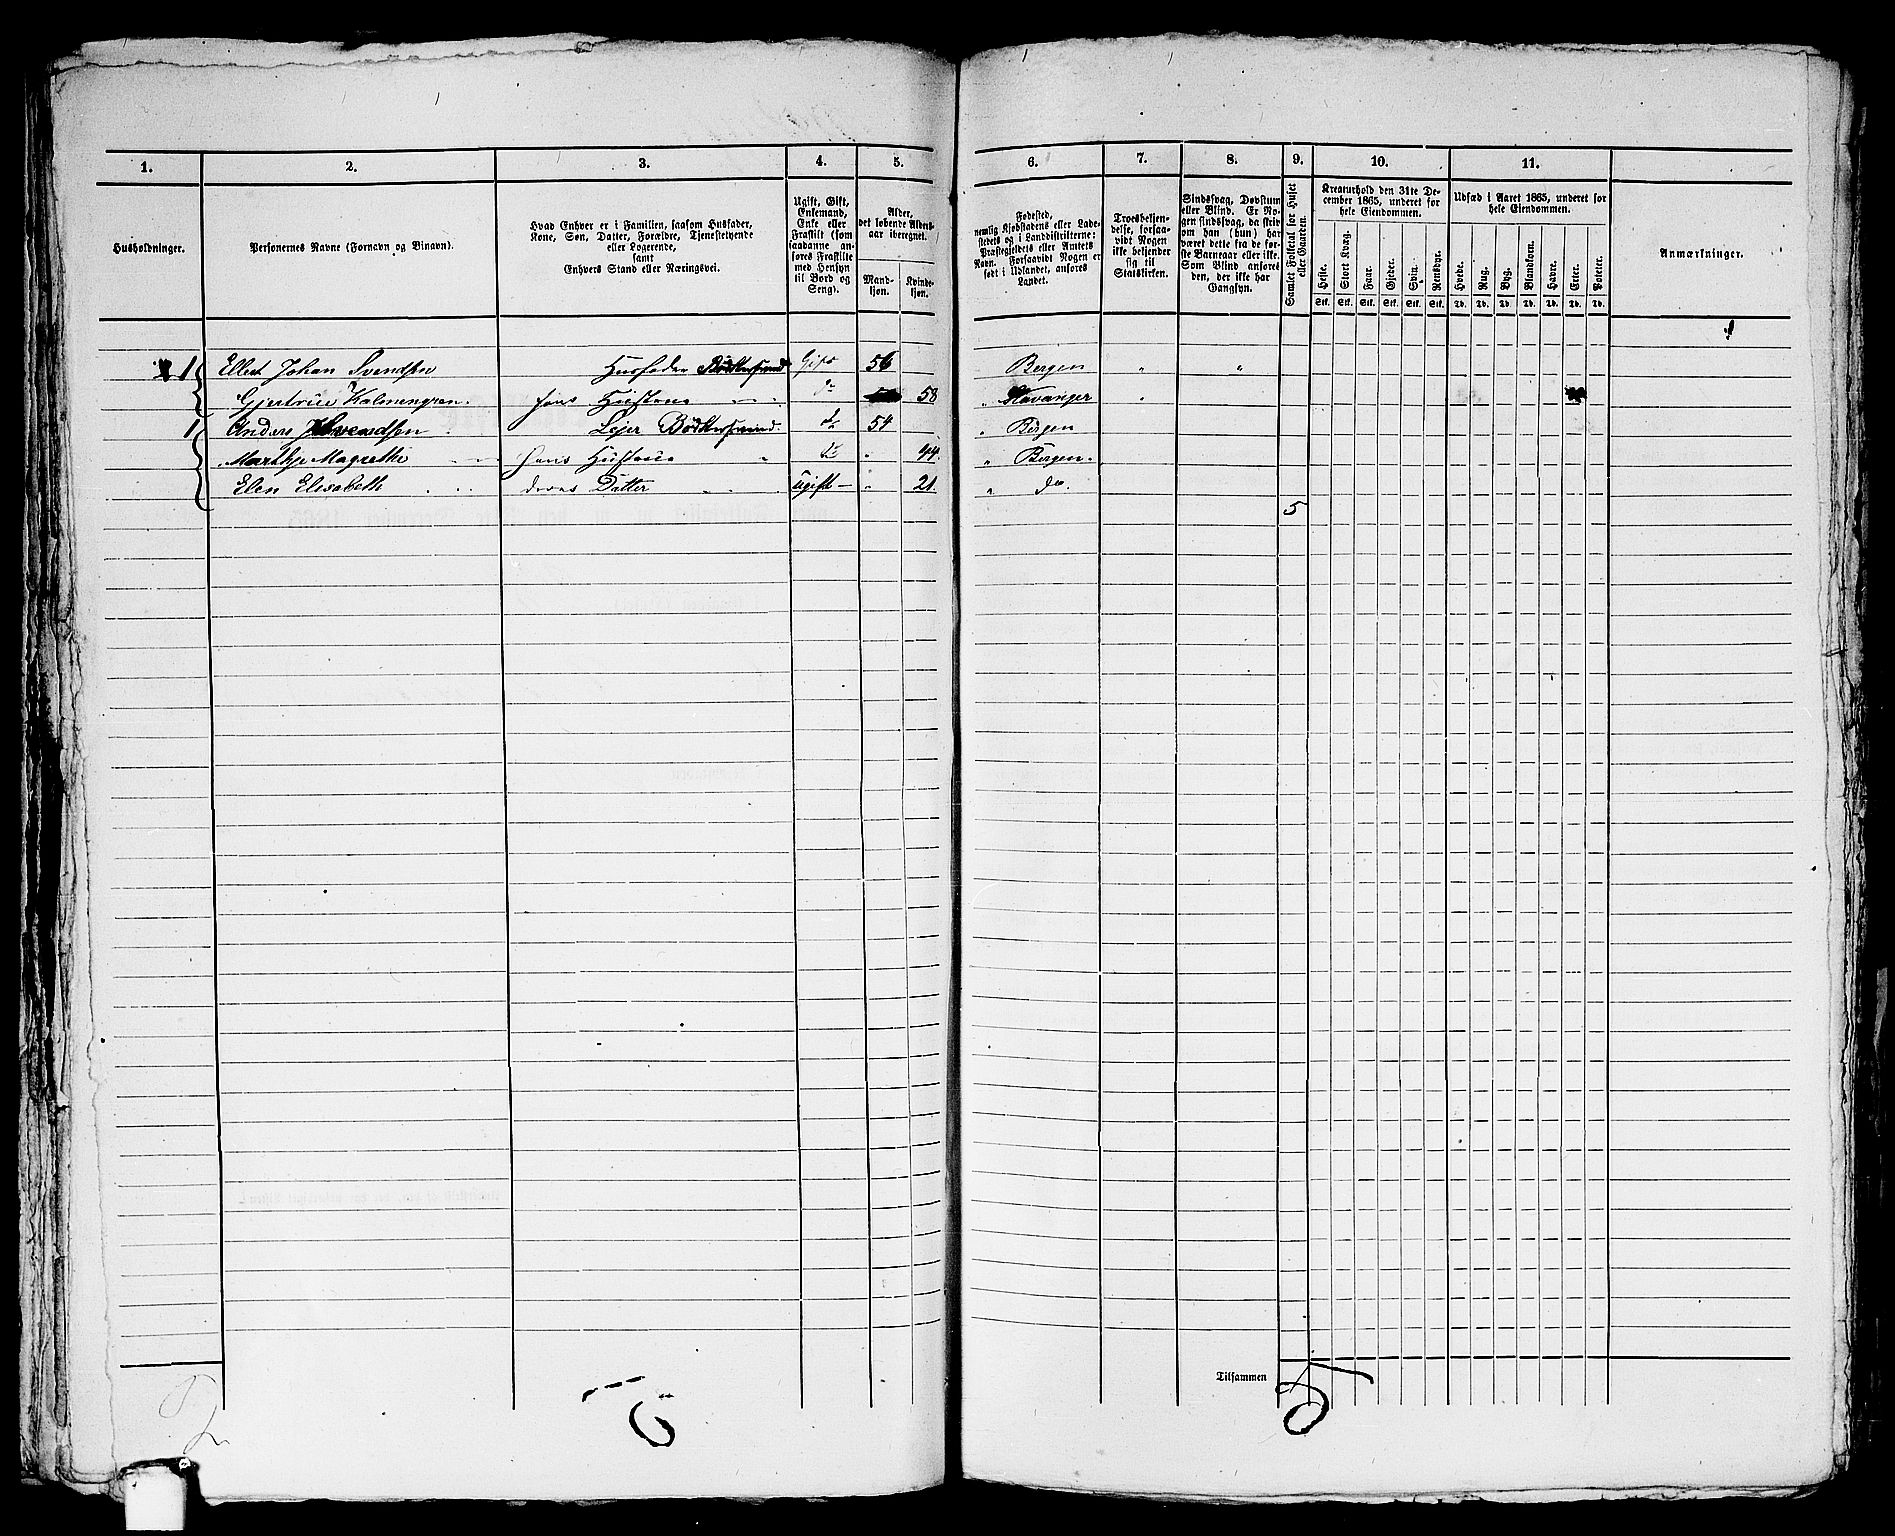 1. 2. 3. 4. 5. 6. 7. 8. 9. 10. 11.
Husholdninger.
Personernes Navne (Fornavn og Binavn).
Hvad Enhver er i Familien, saasom Husfader,
Kone, Søn, Datter, Forældre, Tjenestetyende
eller Logerende,
samt
Enhvers Stand eller Næringsvei.
Ugift, Gift,
Enkemand,
Enke eller
Fraskilt (som
saadanne an-
føres Fraskilte
med Hensyn
til Bord og
Seng).
Alder,
det løbende Alders-
aar iberegnet.
Mand-
kjøn.
Kvinde-
kjøn.
Fødested,
nemlig Kjøbstadens eller Lade-
stedets og i Landdistrikterne:
Præstegjeldets eller Amtets
Navn. Forsaavidt Nogen er
født i Udlandet, anføres
Landet.
Troesbekjen-
delse, forsaa-
vidt Nogen
ikke bekjender
sig til
Statskirken.
Sindssvag, Døvstum
eller Blind. Er No-
gen sindssvag, da skriv
om han (hun) har
været dette fra de før-
ste Barneaar eller ikke.
Som Blind anføres
den, der ikke har
Gangsyn.
Samlet Folketal for Huset
eller Gaarden.
Kreaturhold den 31te De-
cember 1865, underet for
hele Eiendommen.
Heste. Stort Kvæg. Faar. Gjeder. Svin. Rensdyr.
Stk. Stk. Stk. Stk. Stk. Stk.
Udsæd i Aaret 1865, underet for
hele Eiendommen.
Hvede. Rug. Byg. Blandkorn. Havre. Erter. Poteter.
Td. Td. Td. Td. Td. Td. Td.
Anmærkninger.
1
1 Ellert Johan Svendsen Husfader Bødkersvend Gift 56 Bergen " "
Gjertrüe Kalmengren. hans Hüstrue do 58 " Stavanger "
1 Anders Svendsen Lejer Bødkersvend. do 54 " Bergen
Marthe Magrethe hans Hüstrue " do " 44. " Bergen.
Elen Elisabeth deres Datter ügift " 21. " do.
5
Tilsammen 5